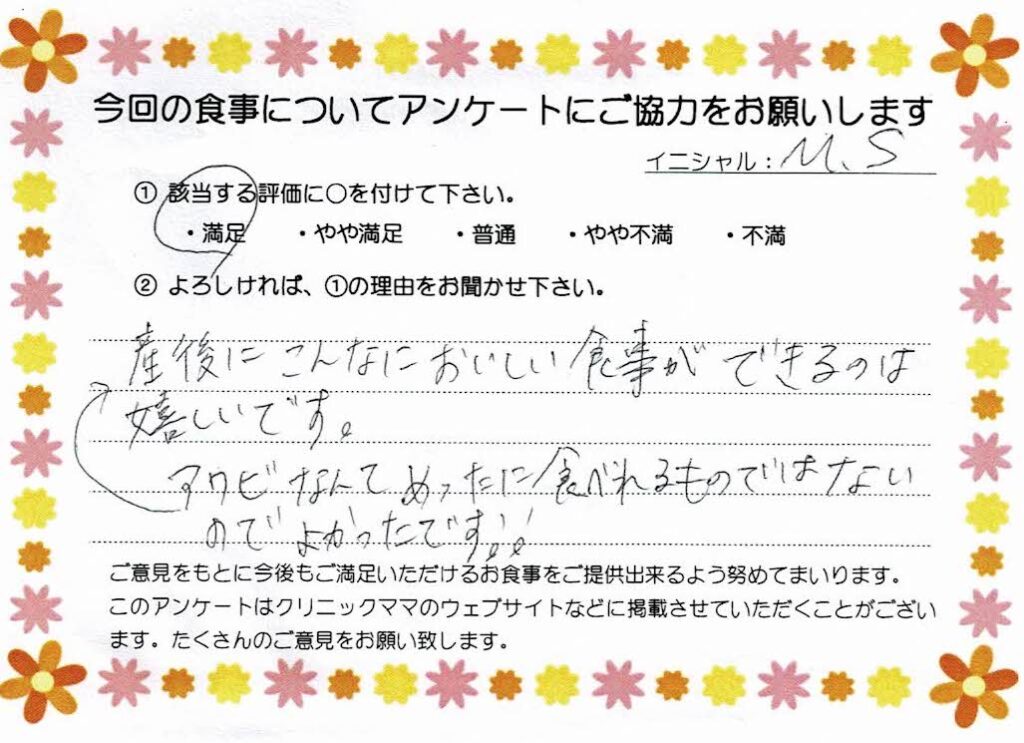 今回の食事についてアンケートにご協力をお願いします
イニシャル：M.S
① 該当する評価に○を付けて下さい。
・満足 ・やや満足 ・普通 ・やや不満 ・不満
② よろしければ、①の理由をお聞かせ下さい。
産後にこんなにおいしい食事ができるのは
嬉しいです。
アワビなんてめったに食べれるものではない
のでよかったです!!
ご意見をもとに今後もご満足いただけるお食事をご提供出来るよう努めてまいります。
このアンケートはクリニックママのウェブサイトなどに掲載させていただくことがござい
ます。たくさんのご意見をお願い致します。